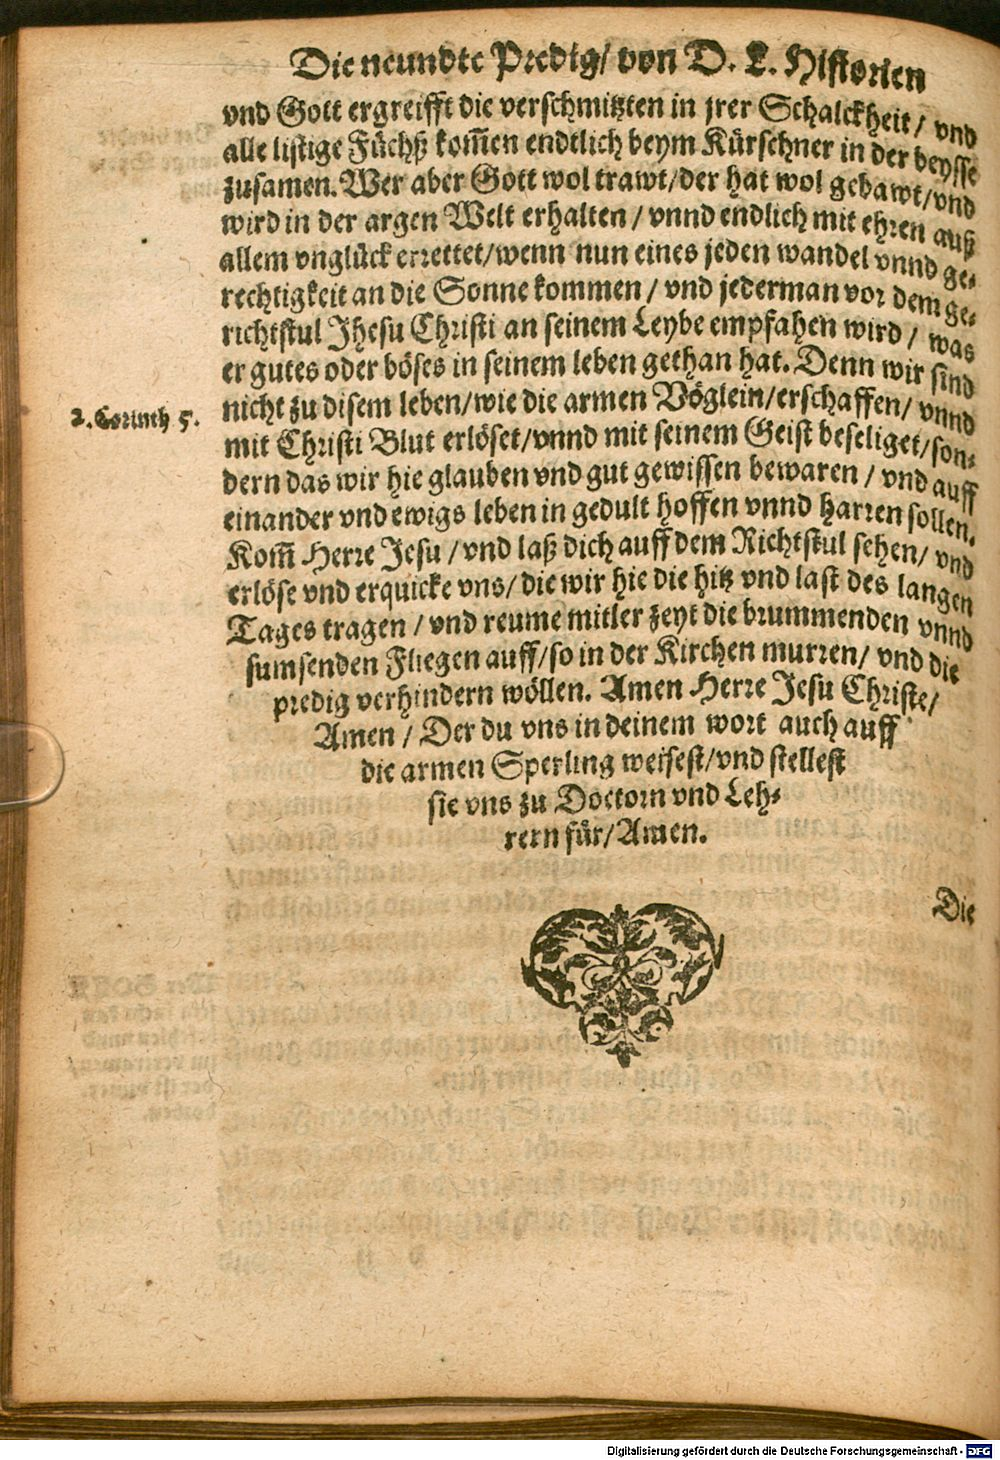 Die neundte Predig/ von D. L. Historien
vnd Gott ergreifft die verschmitzten in jrer Schalckheit/ vnd
alle listige Füchß kom̃en endtlich beym Kürschner in der beysse
zusamen. Wer aber Gott wol trawt/der hat wol gebawt/vnd
wird in der argen Welt erhalten/ vnnd endlich mit ehren auß
allem vnglück errettet/wenn nun eines jeden wandel vnnd ge-
rechtigkeit an die Sonne kommen/ vnd jederman vor dem ge-
richtstul Jhesu Christi an seinem Leybe empfahen wird/ was
er gutes oder böses in seinem leben gethan hat. Denn wir sind
2. Corinth 5. nicht zu disem leben/wie die armen Vöglein/erschaffen/ vnnd
mit Christi Blut erlöset/vnnd mit seinem Geist beseliget/son-
dern das wir hie glauben vnd gut gewissen bewaren/ vnd auff
einander vnd ewigs leben in gedult hoffen vnnd harren sollen.
Kom̃ Herre Jesu/ vnd laß dich auff dem Richtstul sehen/ vnd
erlöse vnd erquicke vns/ die wir hie die hitz vnd last des langen
Tages tragen/ vnd reume mitler zeyt die brummenden vnnd
sumsenden Fliegen auff/so in der Kirchen murren/ vnd die
predig verhindern wöllen. Amen Herre Jesu Christe/
Amen/ Der du vns in deinem wort auch auff
die armen Sperling weisest/vnd stellest
sie vns zu Doctorn vnd Leh-
rern für/Amen.
Die
Digitalisierung gefördert durch die Deutsche Forschungsgemeinschaft - DFG